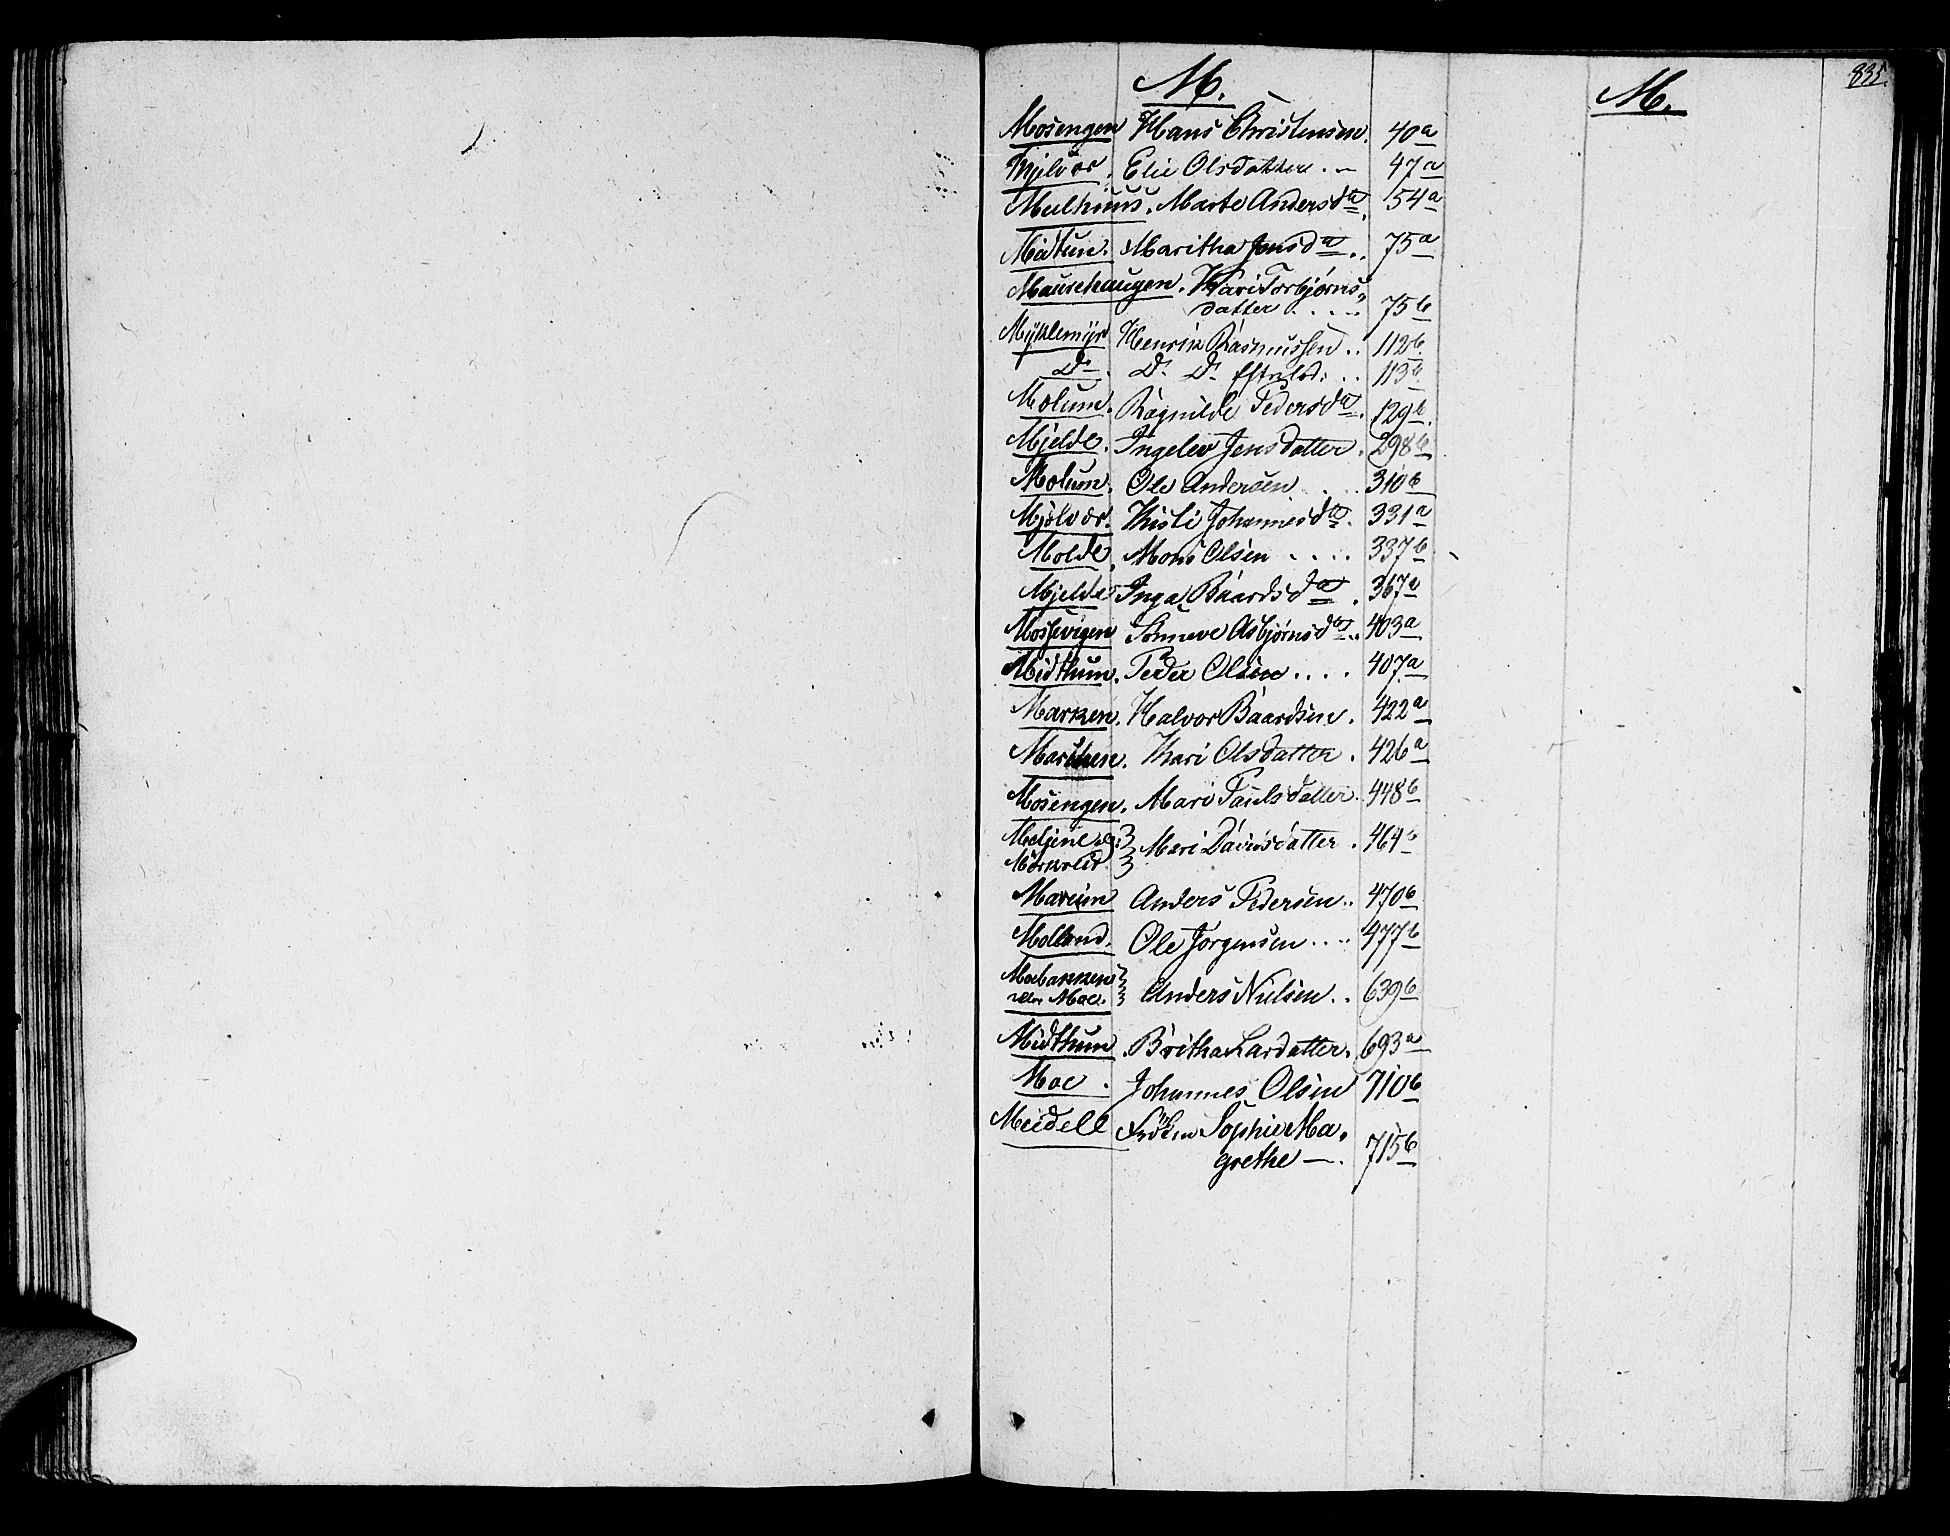 M.
M.
835.
Mosengen Hans Christensen. 40a
Mjelvær. Elie Olsdatter. 47a
Meelhuus. Marte Andersda. 54a
Midtun. Maritha Jensda.. 75a
Maurehaugen. Kari Torbjørns„
datter.... 75b
Myklemyr Henrik Rasmussen.. 112b
Do. Do. Do. 113b
Molum. Ragnilde Pedersda. 129b.
Mjelde. Ingelev Jensdatter. 298b
Molum. Ole Andersen 310b
Mjølvær. Kristi Johannesda. 331a
Molde. Mons Olsen.... 337b
Mjelde Inga Baardsda. 367a
Mossevigen Sønneve Asbjørnsda.. 403a
Midthun. Peder Olsen.... 407a
Marken. Halvor Baardsen. 422a
Marthen. Kari Olsdatter. 426a
Mosengen. Mari Paulsdatter. 448b
Mørkrid Mari Davidsdatter. 464b
Marium Anders Pedersen.. 470b
Molland. Ole Jørgensen.... 477b
Moebakken
eller Moe. Anders Nielsen.. 639b
Midthun. Britha Larsdatter. 693a
Moe. Johannes Olsen 710b
Meidell Frøken Sophie Ma„
grethe —. 715b